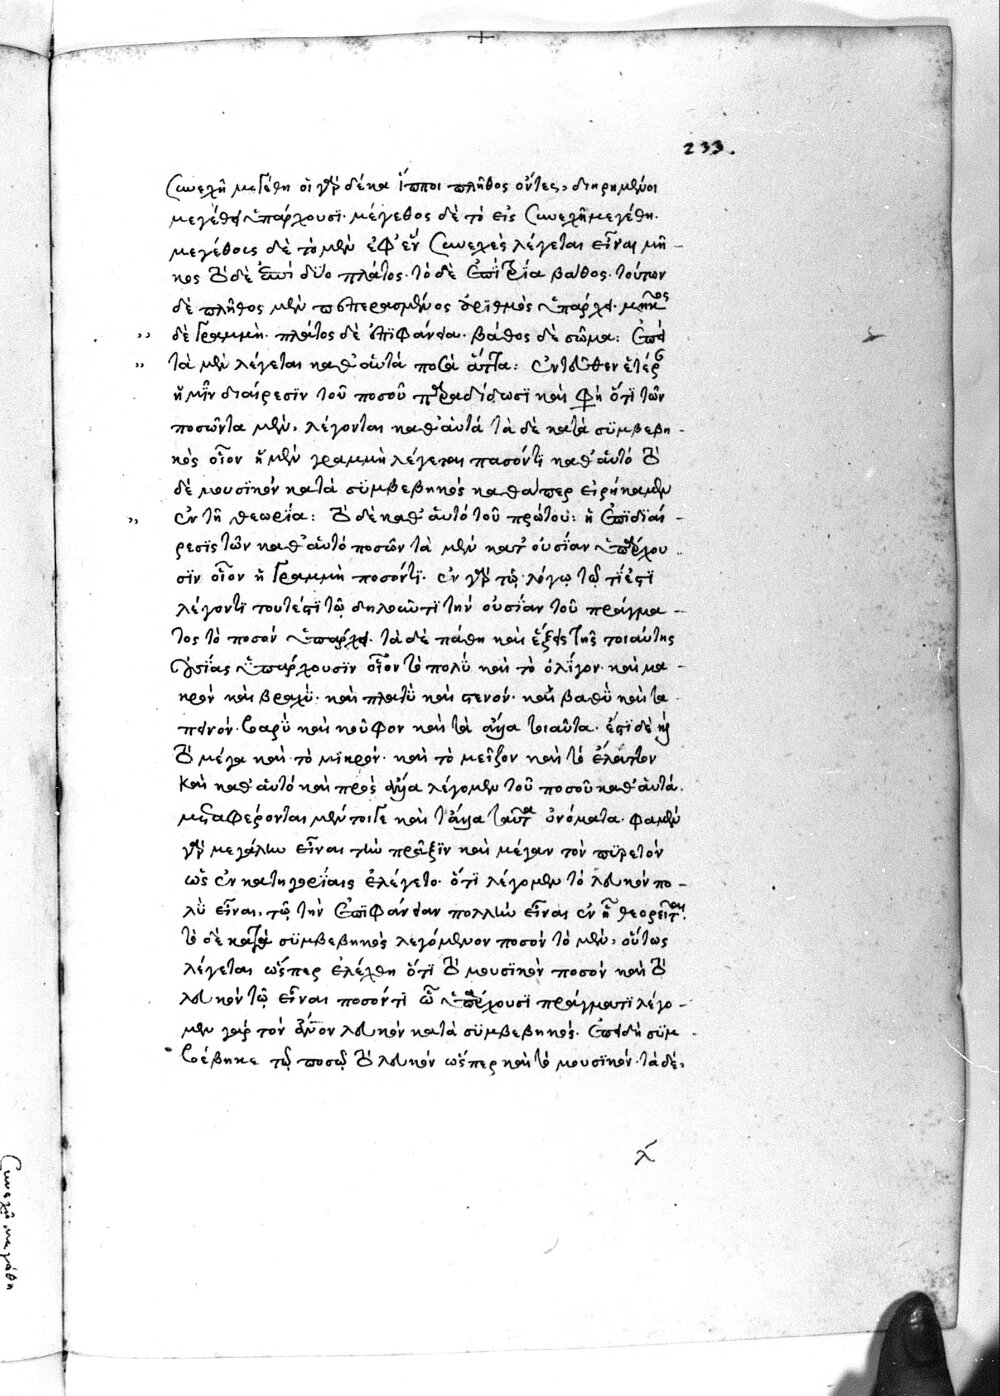 233.
συνεχῆ μεγέθη οἱ γὰρ δέκα ἵπποι πλῆθος ὄντες, διῃρημένοι
μεγέθει ὑπάρχουσι· μέγεθος δὲ τὸ εἰς συνεχῆ μεγέθη·
μεγέθους δὲ τὸ μὲν ἐφ' ἓν συνεχὲς λέγεται εἶναι μῆ-
κος τὸ δὲ ἐπὶ δύο πλάτος· τὸ δὲ ἐπὶ τρία βάθος· τούτων
δὲ πλῆθος μὲν πεπερασμένος ἀριθμὸς ὑπάρχει· μῆκος
" δὲ γραμμὴ· πλάτος δὲ ἐπιφάνεια· βάθος δὲ σῶμα: ἔτι
" τὰ μὲν λέγεται καθ' αὑτὰ ποσὰ ἄττα: ἐντεῦθεν ἑτέραν
ἡμῖν διαίρεσϊν τοῦ ποσοῦ παραδίδωσι καὶ φησὶ ὅτι τῶν
ποσῶν τὰ μὲν, λέγονται καθ' αὑτά τὰ δὲ κατὰ σϋμβεβη-
κὸς οἷον ἡ μὲν γραμμὴ λέγεται ποσόν τι καθ' αὑτὸ τὸ
δὲ μουσϊκὸν κατὰ σϋμβεβηκὸς καθάπερ εἰρήκαμεν
" ἐν τῇ θεωρίᾳ: τὸ δὲ καθ' αὑτὸ τοῦ πρώτου: ἡ ἐπϊδιαί-
ρεσϊς τῶν καθ' αὑτὸ ποσῶν τὰ μὲν κατ' οὐσίαν ὑπάρχου
σϊν οἷον ἡ γραμμὴ ποσόν τϊ· ἐν γὰρ τῷ λόγῳ τῷ τί ἐστϊ
λέγοντϊ τουτέστϊ τῷ δηλοῦντϊ τὴν οὐσίαν τοῦ πράγμα-
τος τὸ ποσὸν ὑπάρχει· τὰ δὲ πάθη καὶ ἕξεις τῆς τοιαύτης
οὐσίας ὑπάρχουσϊν οἷον τὸ πολϋ καὶ τὸ ὀλΐγον· καὶ μα-
κρὸν καὶ βραχϋ· καὶ πλατϋ καὶ στενόν· καὶ βαθϋ καὶ τα-
πεινόν· βαρϋ καὶ κοῦφον καὶ τὰ ἄλλα τοιαῦτα· ἔστϊ δὲ καὶ
τὸ μέγα καὶ τὸ μϊκρόν· καὶ τὸ μεῖζον καὶ τὸ ἔλαττον
καὶ καθ' αὑτὸ καὶ πρὸς ἄλληλα λεγόμενα τοῦ ποσοῦ καθ' αὑτά·
μεταφέρονται μέντοιγε καὶ τὰ ἄλλα ταῦτα ὀνόματα· φαμὲν
γὰρ μεγάλην εἶναι τὴν πρᾶξϊν καὶ μέγαν τὸν πϋρετὸν
ὡς ἐν κατηγορΐαις ἐλέγετο· ὅτι λέγομεν τὸ λευκὸν πο-
λϋ εἶναι, τῷ τὴν ἐπϊφάνειαν πολλὴν εἶναι ἐν ᾗ θεωρεῖται·
τὸ δὲ κατὰ σϋμβεβηκὸς λεγόμενον ποσὸν τὸ μὲν, οὕτως
λέγεται ὥσπερ ἐλέχθη ὅτϊ τὸ μουσϊκὸν ποσὸν καὶ τὸ
λευκὸν τῷ εἶναι ποσόν τι ᾧ ὑπάρχουσι πράγματϊ λέγο-
μεν γὰρ τὸν ἄνθρωπον λευκὸν κατὰ σϋμβεβηκὸς· ἐπειδὴ σϋμ-
βέβηκε τῷ ποσῷ τὸ λευκόν ὥσπερ καὶ τὸ μουσϊκόν· τὰ δὲ,
λ
συνεχῆ μεγέθη